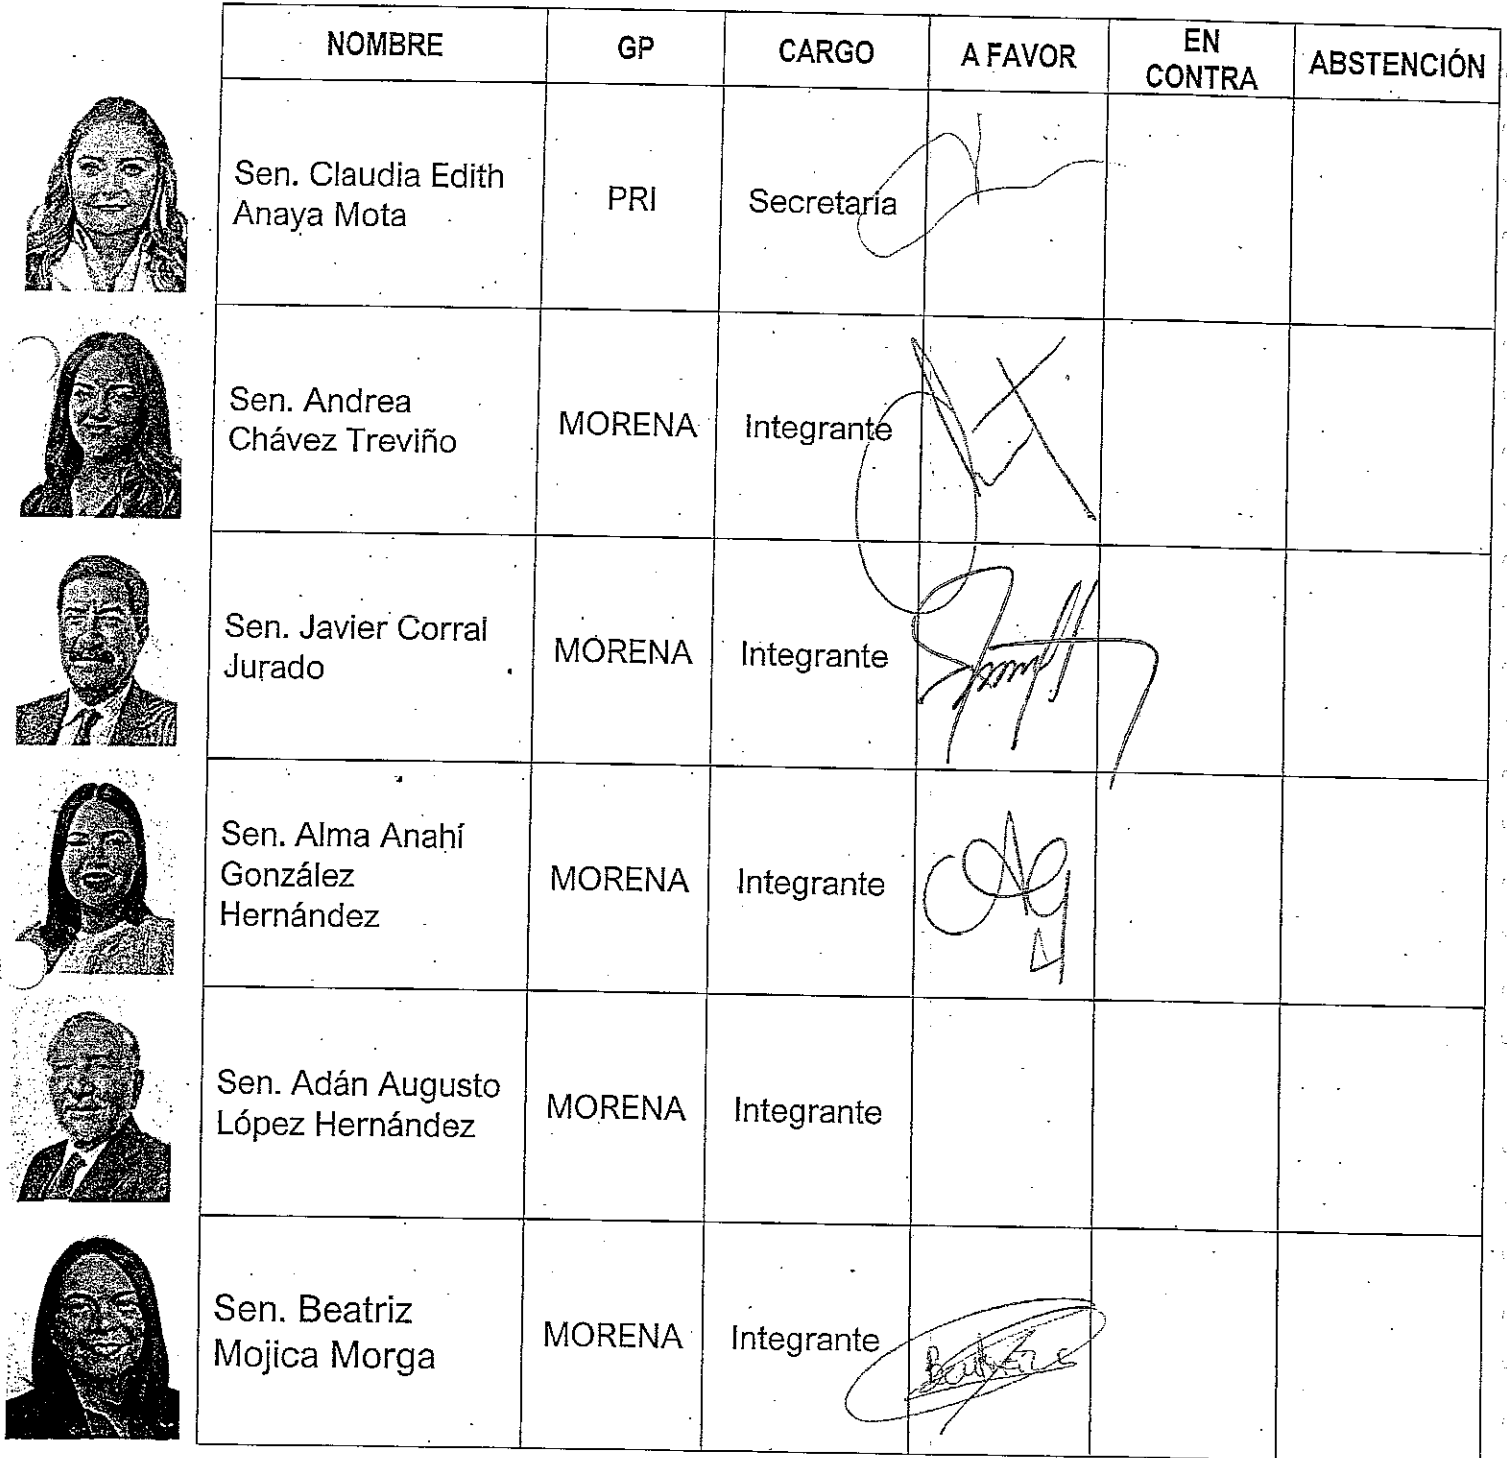 NOMBRE GP CARGO A FAVOR EN CONTRA ABSTENCIÓN
Sen. Claudia Edith
Anaya Mota
PRI
Secretaria
Sen. Andrea
Chávez Treviño
MORENA
Integrante
Sen. Javier Corral
Jurado
MORENA
Integrante
Sen. Alma Anahí
González
Hernández
MORENA
Integrante
Sen. Adán Augusto
López Hernández
MORENA
Integrante
Sen. Beatriz
Mojica Morga
MORENA
Integrante